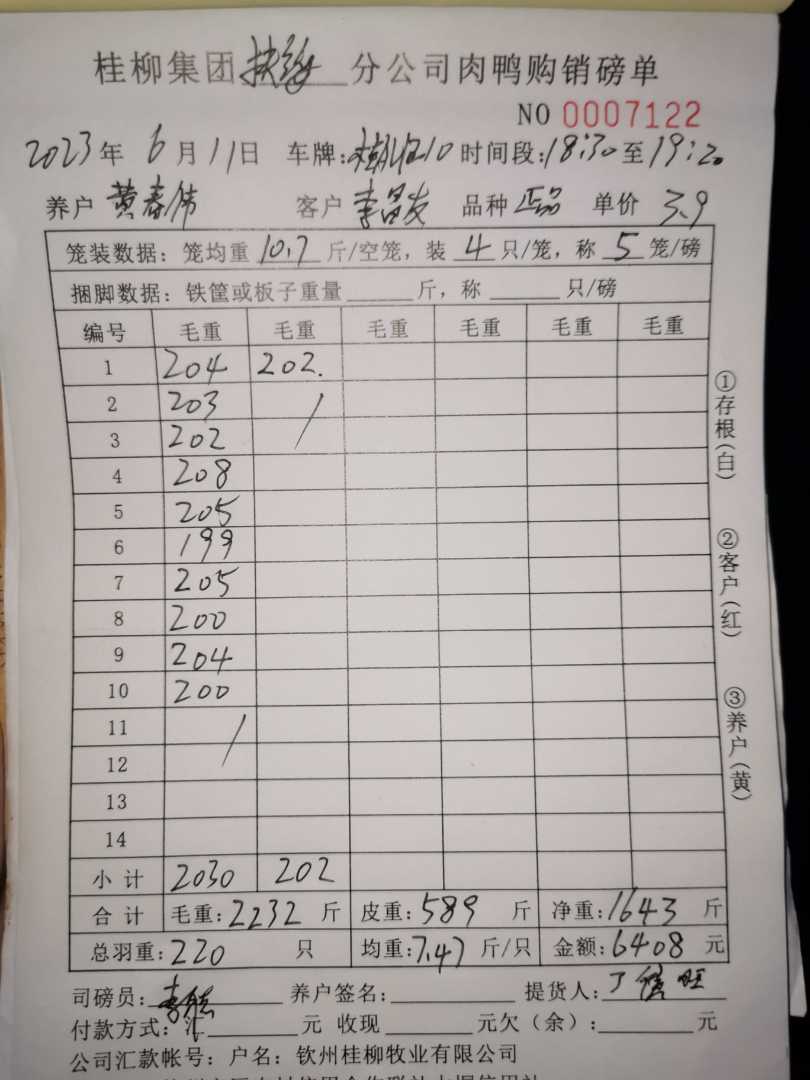 桂柳集团 分公司肉鸭购销磅单
NO 0007122
2023年 6月11日 车牌: 10 时间段:18:30至19:20
养户 黄春伟 客户 李昌友 品种 正品 单价 3.9
笼装数据: 笼均重 10.7 斤/空笼, 装 4 只/笼, 称 5 笼/磅
捆脚数据: 铁筐或板子重量 斤, 称 只/磅
编号 毛重 毛重 毛重 毛重 毛重 毛重
1 204 202.
2 203 /
3 202
4 208
5 205
6 199
7 205
8 200
9 204
10 200
11 /
12
13
14
小计 2030 202
合计 毛重:2232 斤 皮重:589 斤 净重:1643 斤
总羽重:220 只 均重:7.47 斤/只 金额:6408 元
司磅员: 养户签名: 提货人:
付款方式:汇 元 收现 元欠(余): 元
公司汇款帐号: 户名: 钦州桂柳牧业有限公司
①存根(白)
②客户(红)
③养户(黄)